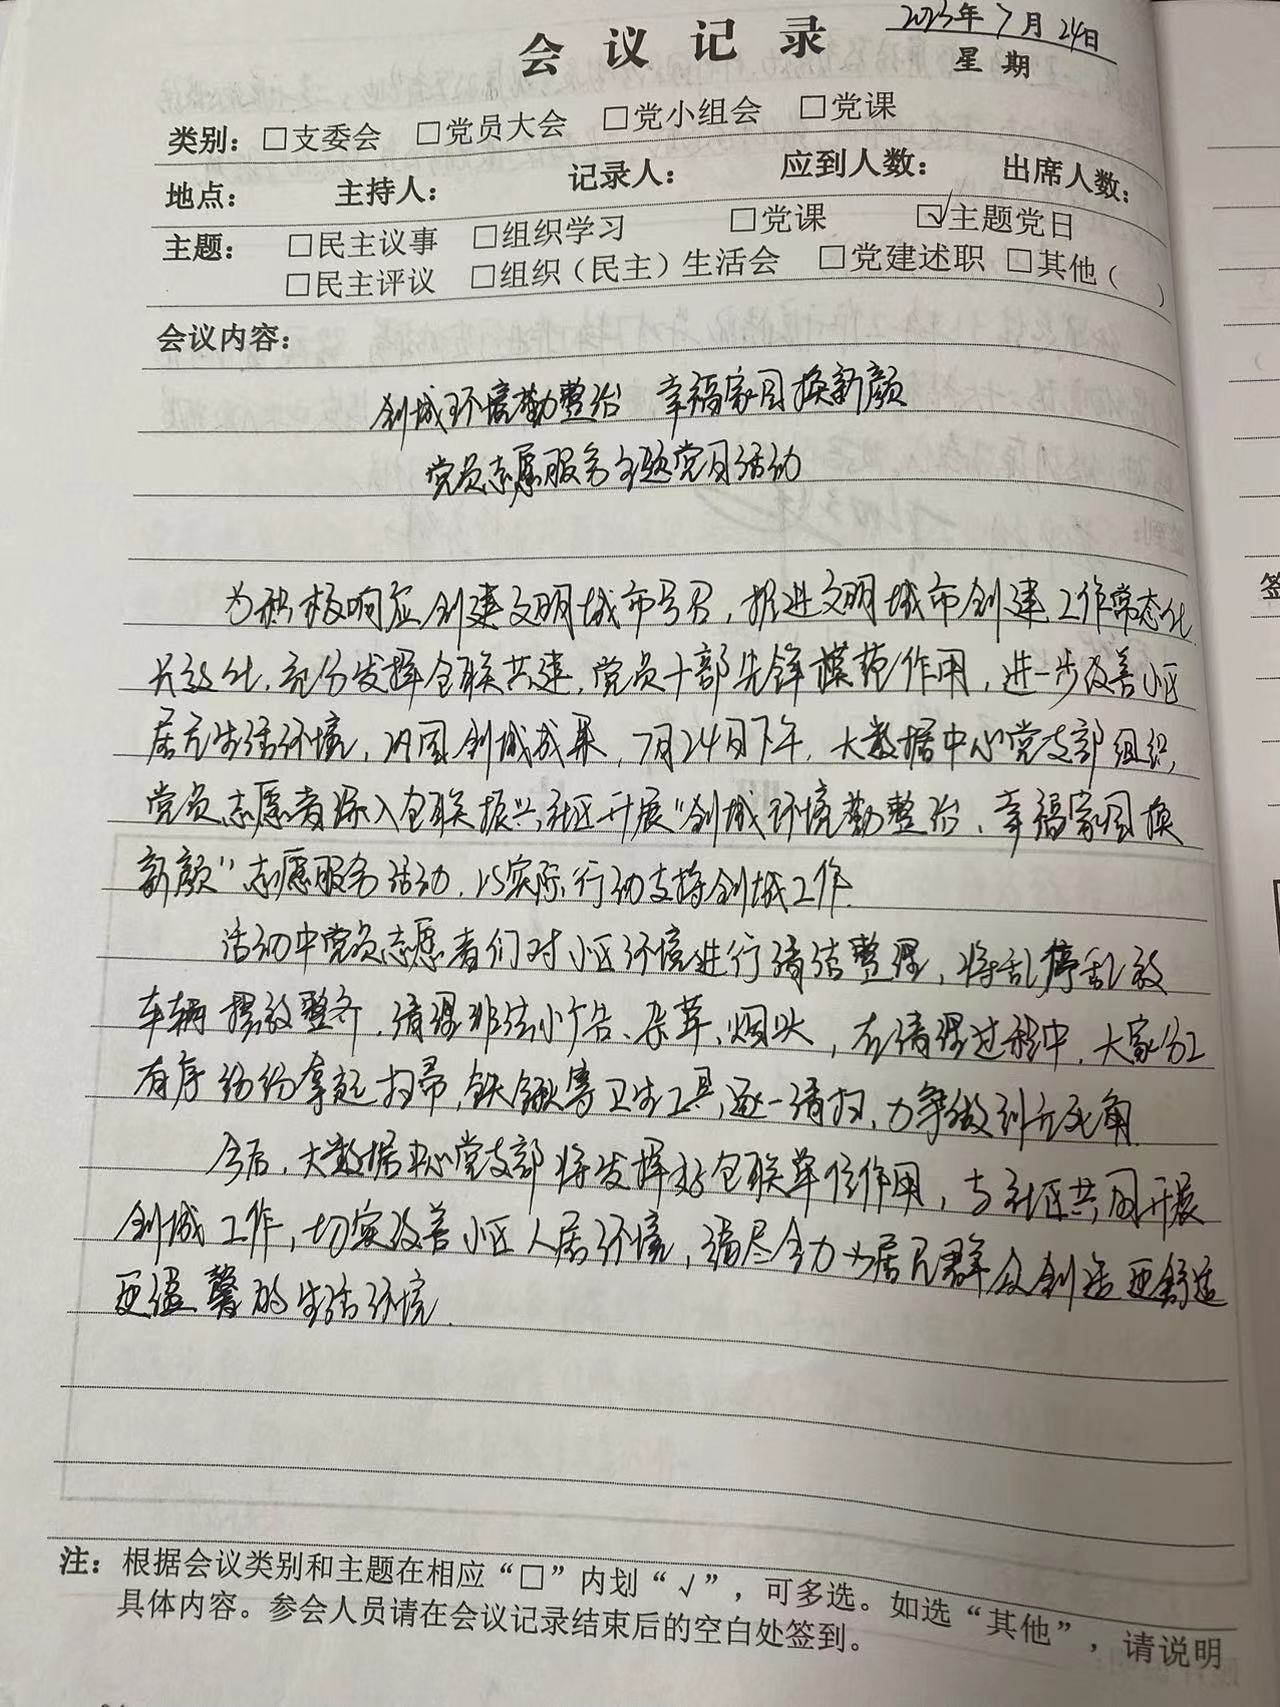 2023年7月24日
会议记录
星期
类别：□支委会 □党员大会 □党小组会 □党课
地点： 主持人： 记录人： 应到人数： 出席人数：
主题： □民主议事 □组织学习 □党课 ☑主题党日
□民主评议 □组织（民主）生活会 □党建述职 □其他（ ）
会议内容：
创城环境勤整治 幸福家园换新颜
党员志愿服务主题党日活动
为积极响应创建文明城市号召，推进文明城市创建工作常态化
长效化，充分发挥包联共建，党员干部先锋模范作用，进一步改善小区
居民生活环境，巩固创城成果，7月24日下午，大数据中心党支部组织
党员志愿者深入包联振兴社区开展“创城环境勤整治，幸福家园换
新颜”志愿服务活动，以实际行动支持创城工作.
活动中党员志愿者们对小区环境进行清洁整理，将乱停乱放
车辆摆放整齐，清理非法小广告、杂草、烟头，在清理过程中，大家分工
有序纷纷拿起扫帚，铁锹等卫生工具，逐一清扫，力争做到无死角.
今后，大数据中心党支部将发挥好包联单位作用，与社区共同开展
创城工作，切实改善小区人居环境，竭尽全力为居民群众创造更舒适
更温馨的生活环境.
注：根据会议类别和主题在相应“□”内划“√”，可多选。如选“其他”，请说明
具体内容。参会人员请在会议记录结束后的空白处签到。
签